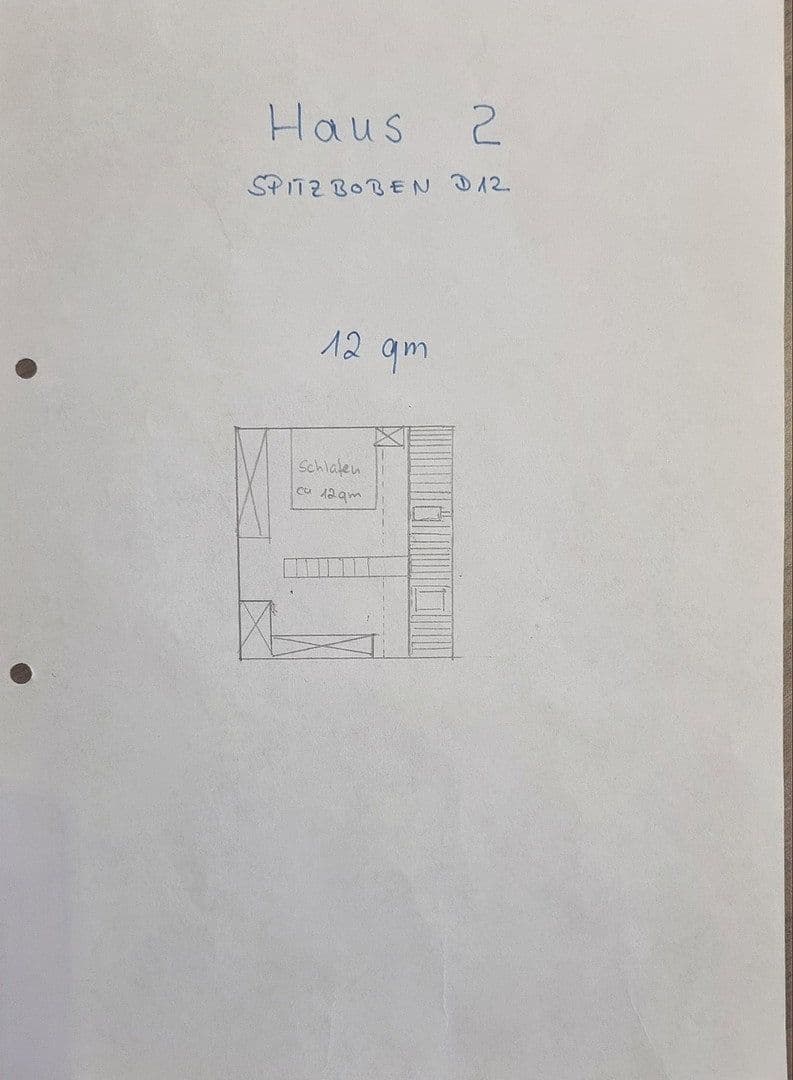 Haus 2
SPITZBOBEN D12
12 qm
Schlafen
ca 12qm